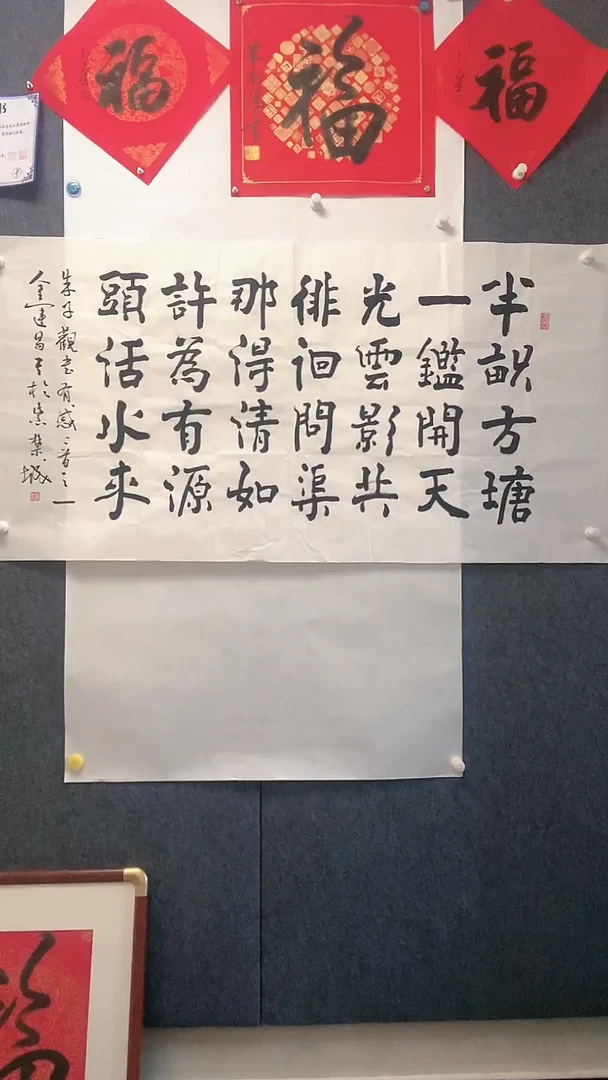 福
福
福
半畝方塘
一鑑開天
光雲影共
徘徊問渠
那得清如
許為有源
頭活水來
朱子觀書有感二首之一
金連昌書於紫禁城
福